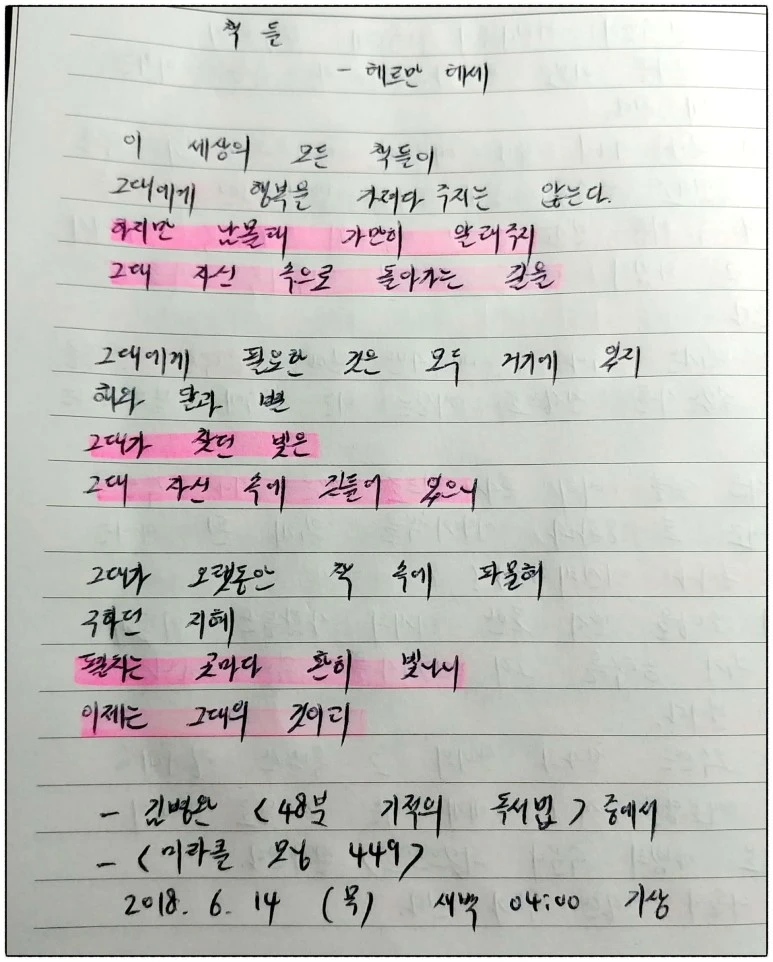 책 들
- 헤르만 헤세
이 세상의 모든 책들이
그대에게 행복을 가져다 주지는 않는다.
하지만 남몰래 가만히 알려주지
그대 자신 속으로 돌아가는 길을
그대에게 필요한 것은 모두 거기에 있지
해와 달과 별
그대가 찾던 빛은
그대 자신 속에 깃들어 있으니
그대가 오랫동안 책 속에 파묻혀
구하던 지혜
펼치는 곳마다 환히 빛나니
이제는 그대의 것이리
- 김병완 <48분 기적의 독서법> 중에서
- <미라클 모닝 449>
2018. 6. 14 (목) 새벽 04:00 기상